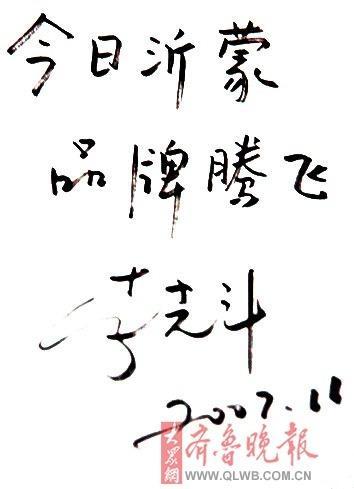 今日沂蒙
品牌腾飞
李克斗
2007.11
大众网 齐鲁晚报
WWW.QLWB.COM.CN